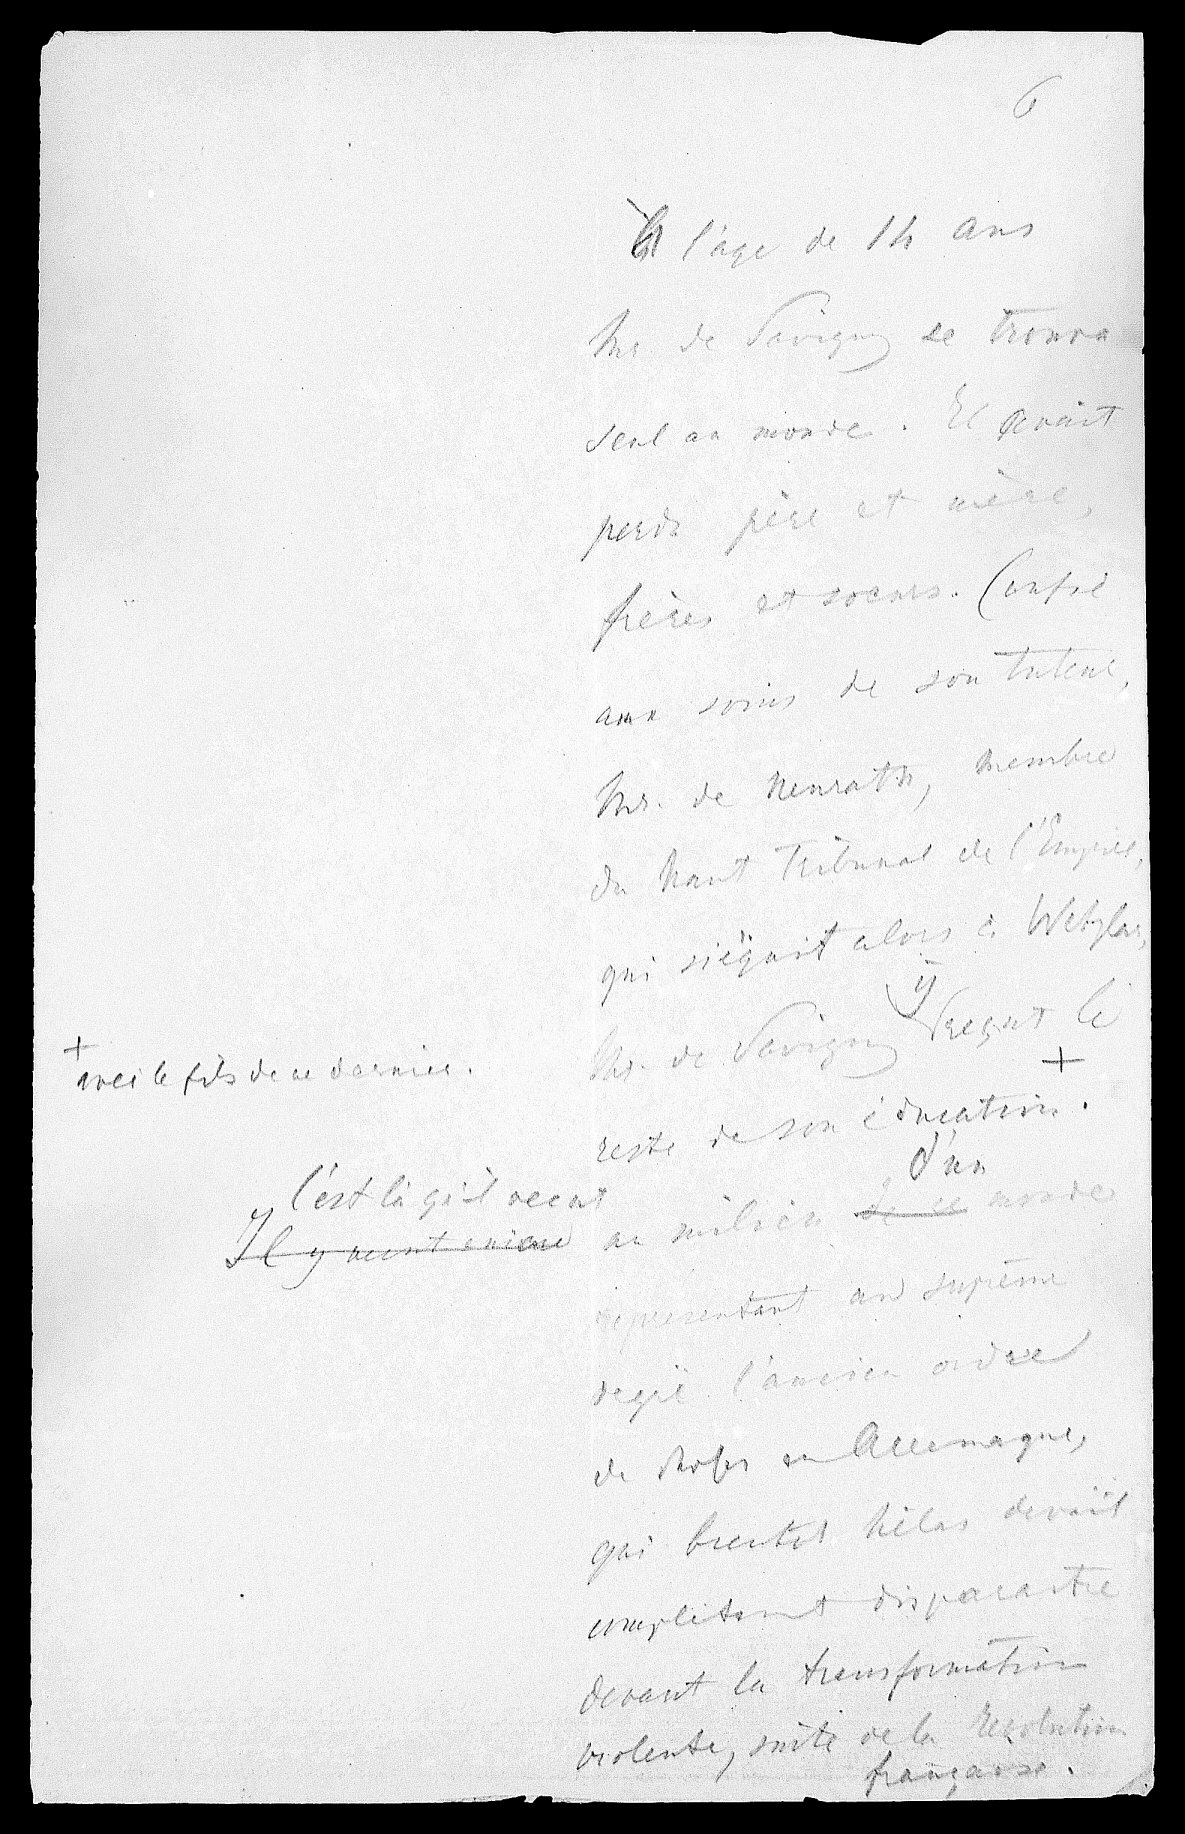 6
A l'age de 14 ans
Mr. de Savigny se trouva
seul au monde. Il avait
perdu père et mère,
frères et soeurs. Confié
aux soins de son tuteur,
Mr. de Neurath, membre
du haut Tribunal de l'Empire,
qui siégait alors à Wetzlar,
y
Mr. de Savigny reçut le
+
+
avec le fils de ce dernier.
reste de son éducation.
d'un
C'est là qu'il vecut
Il y vecut au milieu de ce monde
représentant au suprême
degré l'ancien ordre
de choses en Allemagne,
qui bientot hélas devait
complètement disparaitre
devant la transformation
violente, suite de la Révolution
française.